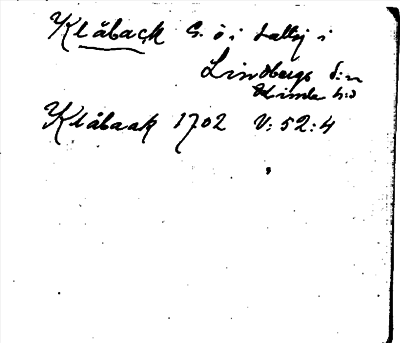 Klåback S. ö i Saltsj i
Lindbergs s:n
Himle h:d
Klåbaak 1702 V: 52: 4